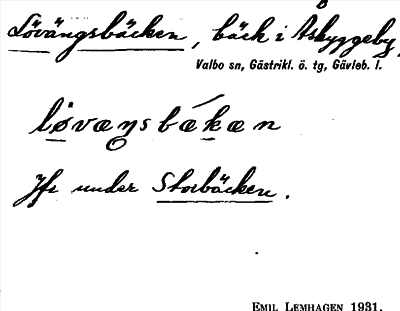 Lövängsbäcken, bäck i Åsbyggeby,
Valbo sn, Gästrikl. ö. tg, Gävleb. l.
løvæŋsbækæn
Jfr under Storbäcken.
EMIL LEMHAGEN 1931.